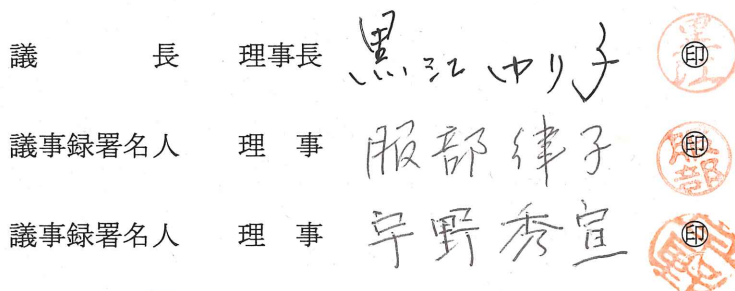 議長 理事長 黒江ゆり子 ㊞
議事録署名人 理事 服部律子 ㊞
議事録署名人 理事 宇野秀宣 ㊞